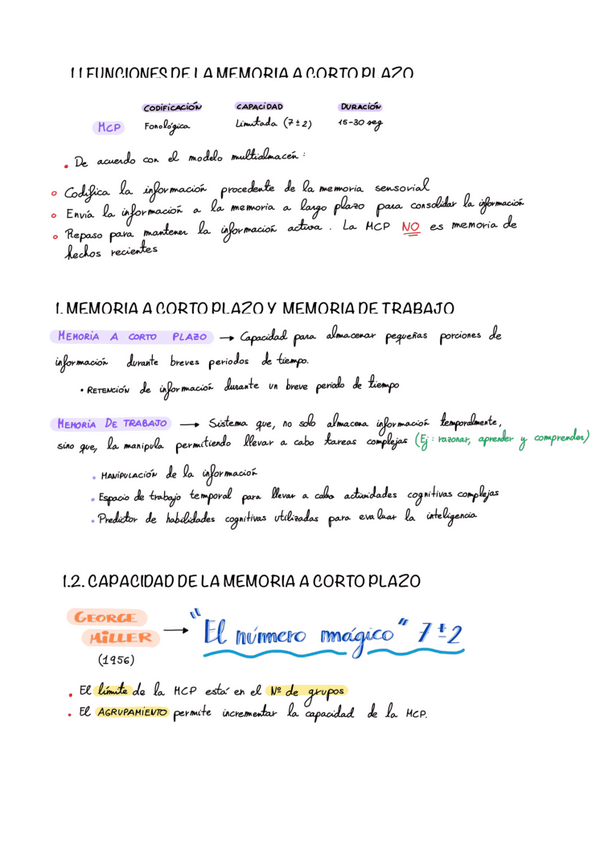 1.1 FUNCIONES DE LA MEMORIA A CORTO PLAZO
CODIFICACIÓN CAPACIDAD DURACIÓN
MCP Fonológica Limitada (7±2) 15-30 seg
• De acuerdo con el modelo multialmacén:
o Codifica la información procedente de la memoria sensorial
o Envía la información a la memoria a largo plazo para consolidar la información
o Repaso para mantener la información activa. La MCP NO es memoria de
hechos recientes
1. MEMORIA A CORTO PLAZO Y MEMORIA DE TRABAJO
MEMORIA A CORTO PLAZO → Capacidad para almacenar pequeñas porciones de
información durante breves periodos de tiempo.
• RETENCIÓN de información durante un breve periodo de tiempo
MEMORIA DE TRABAJO → Sistema que, no solo almacena información temporalmente,
sino que, la manipula permitiendo llevar a cabo tareas complejas (Ej: razonar, aprender y comprender)
• MANIPULACIÓN de la información
• Espacio de trabajo temporal para llevar a cabo actividades cognitivas complejas
• Predictor de habilidades cognitivas utilizadas para evaluar la inteligencia
1.2. CAPACIDAD DE LA MEMORIA A CORTO PLAZO
GEORGE
MILLER → "El número mágico" 7±2
(1956)
• El límite de la MCP está en el Nº de grupos
• El AGRUPAMIENTO permite incrementar la capacidad de la MCP.